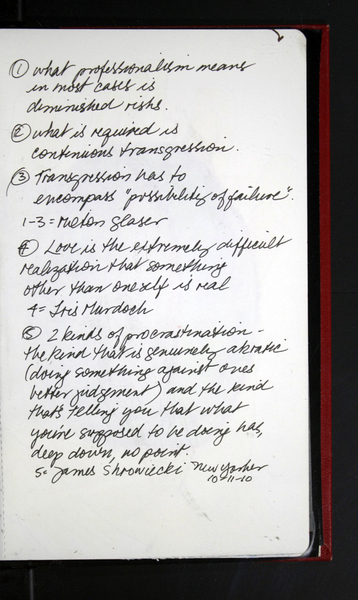 ① what professionalism means
in most cases is
diminished risks.
② what is required is
continuous transgression.
③ Transgression has to
encompass "possibility of failure".
1-3 = Milton Glaser
④ Love is the extremely difficult
realization that something
other than oneself is real
4 = Iris Murdoch
⑤ 2 kinds of procrastination -
the kind that is genuinely akratic
(doing something against ones
better judgement) and the kind
that's telling you that what
you're supposed to be doing has,
deep down, no point.
5 = James Shrowiecki New Yorker
10-11-10